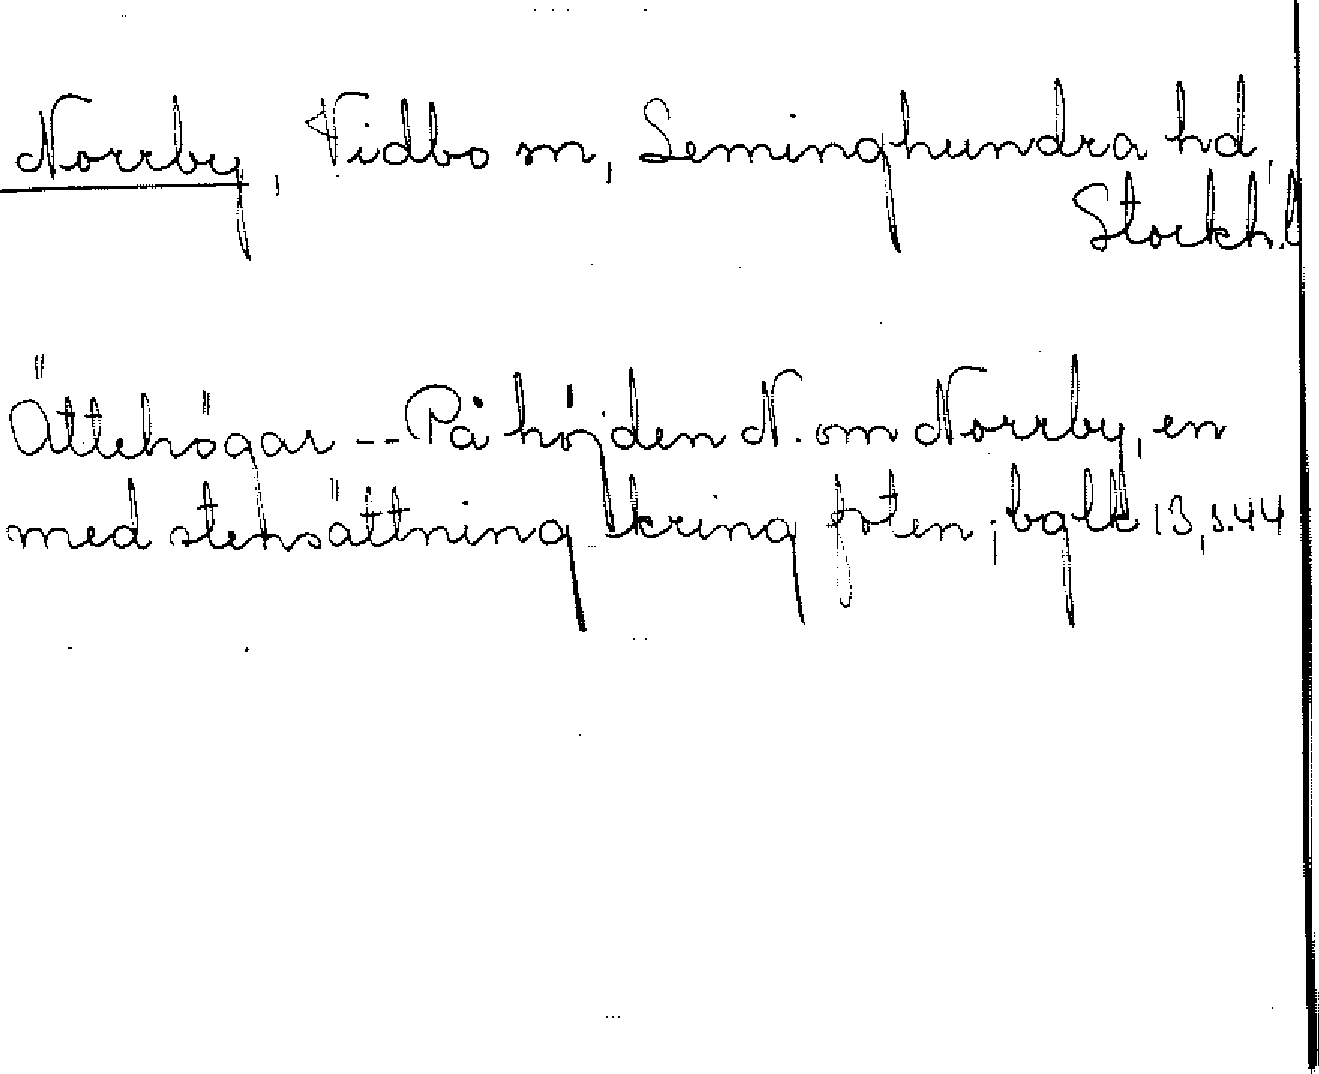 Norrby, Vidbo sn, Seminghundra hd,
Stockh. l
Ättehögar -- På höjden N. om Norrby, en
med stensättning kring foten; bglk 13, s. 44